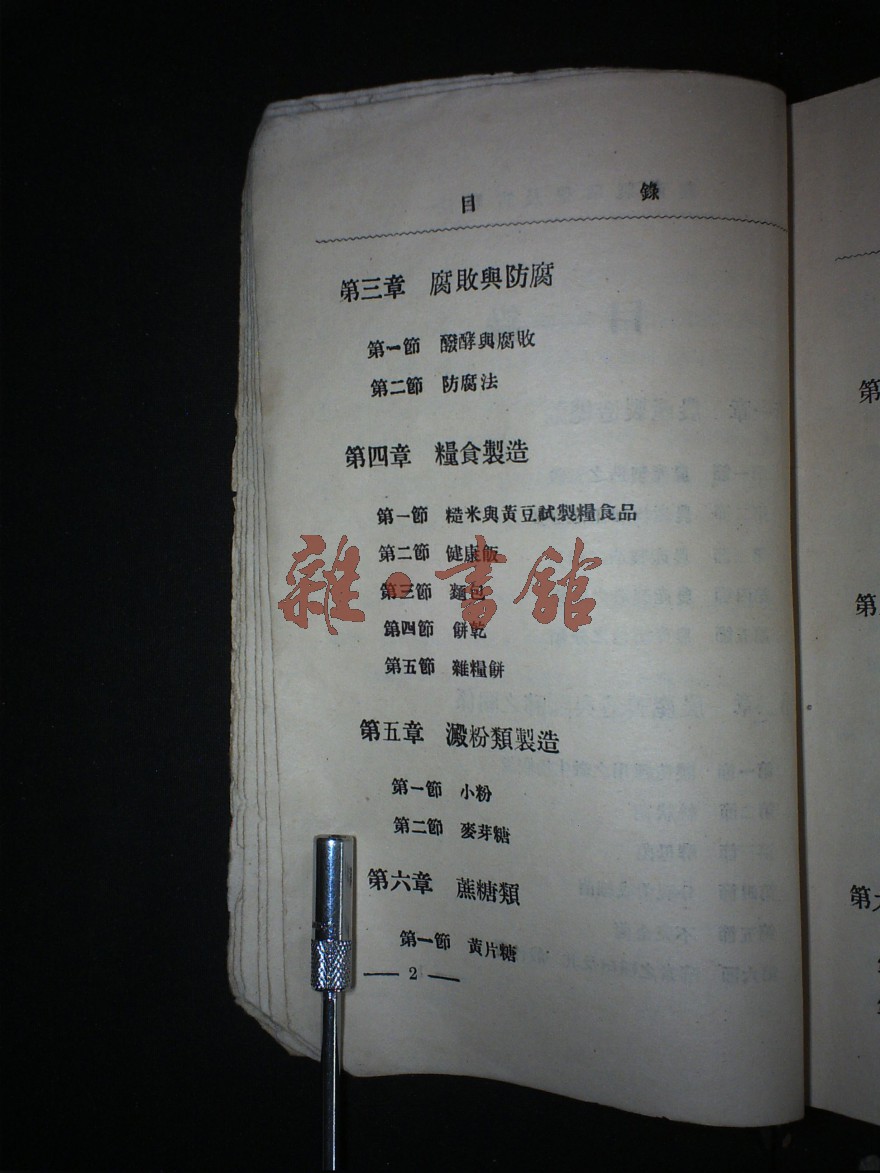 目 錄
第三章 腐敗與防腐
第一節 醱酵與腐敗
第二節 防腐法
第四章 糧食製造
第一節 糙米與黃豆試製糧食品
第二節 健康飯
第三節 麵包
第四節 餅乾
第五節 雜糧餅
第五章 澱粉類製造
第一節 小粉
第二節 麥芽糖
第六章 蔗糖類
第一節 黃片糖
2
雜·書館
第
第
第